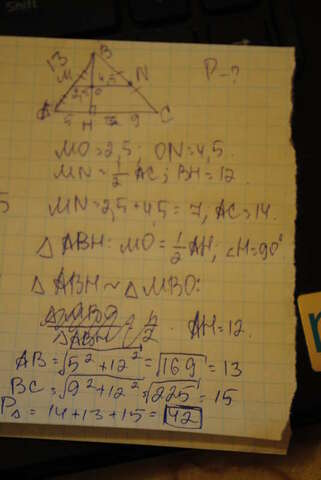 Shift
13
B
M
N
P-?
4,5
2,5
O
A
5
H
9
C
MO=2,5; ON=4,5.
MN=1/2 AC; BH=12.
MN=2,5+4,5=7, AC=14.
△ABH: MO=1/2 AH; ∠H=90°
△ABH~△MBO:
AH=12.
AB=√5²+12²=√169=13
BC=√9²+12²=√225=15
P△=14+13+15=42